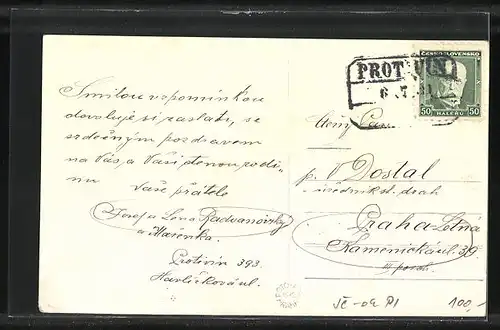 Smilou vzpomínkou
dovoluji si zaslati, se
srdečným pozdravem
na Vás, a Vaši ctěnou rodi-
nu
Vaše přátele
Josef a Lena Radvanovský
a Mařenka.
Protivín 393
Havlíčkova ul.
PROTIVÍN
6.7.31
ČESKOSLOVENSKO
50 HALÉŘŮ 50
p. V Dostal
drah
Praha-Letná
Kamenická ul. 39
III posch.
JC-09 P1
100,-